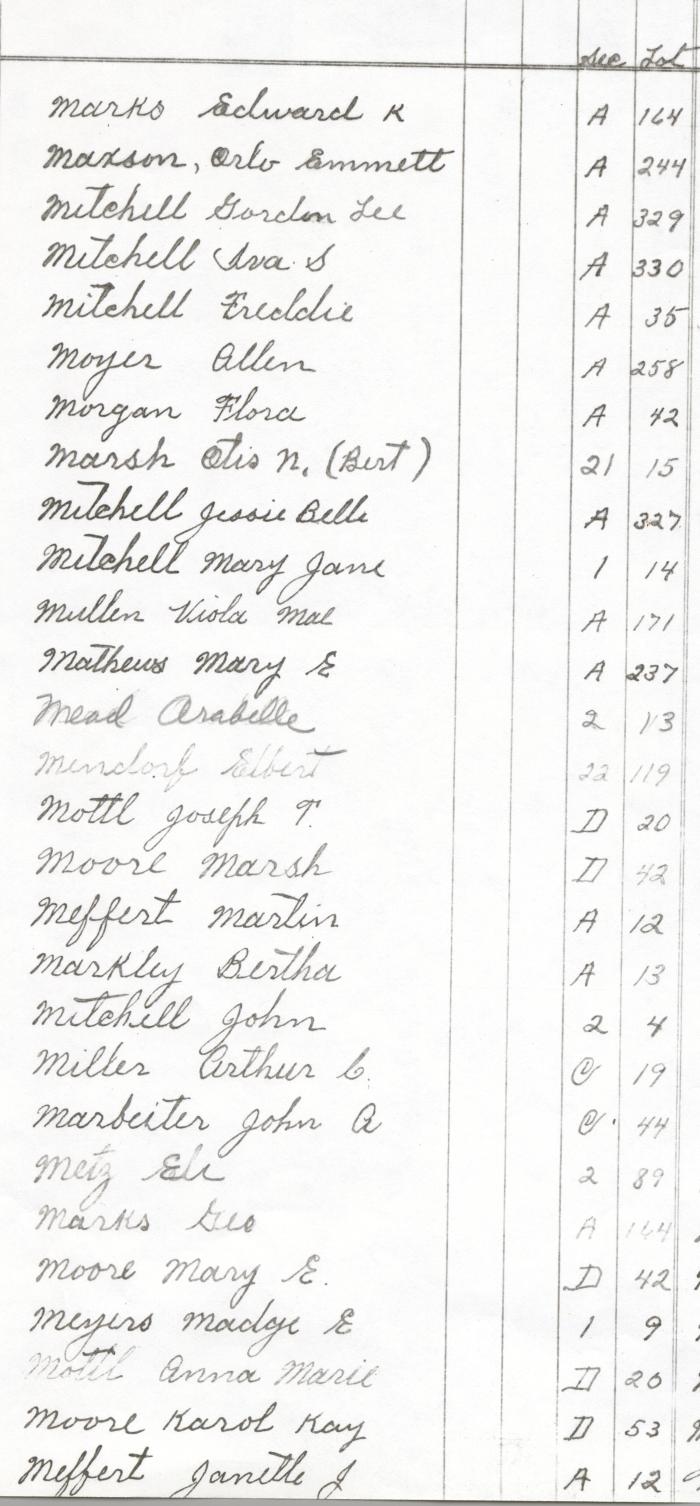 Sec Lot
Marks Edward K A 164
Maxson, Orlo Emmett A 244
Mitchell Gordon Lee A 329
Mitchell Iva S A 330
Mitchell Freddie A 35
Moyer Allen A 258
Morgan Flora A 42
Marsh Otis N. (Bert) 21 15
Mitchell Jessie Belle A 327
Mitchell Mary Jane 1 14
Mullen Viola Mae A 171
Mathews Mary E A 237
Mead Arabelle 2 13
Mendorf Elbert 22 119
Mottl Joseph T. D 20
Moore Marsh D 42
Meffert Martin A 12
Markley Bertha A 13
Mitchell John 2 4
Miller Arthur C. C 19
Marbeiter John A C 44
Metz Eli 2 89
Marks Geo A 164
Moore Mary E. D 42
Meyers Madge E 1 9
Mottl Anna Marie D 20
Moore Karol Kay D 53
Meffert Janette J A 12